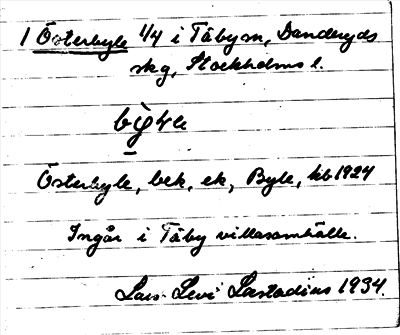 1 Österbyle 1/4 i Täby sn, Danderyds
skg, Stockholms l.
Österbyle, bek, ek, Byle, kb 1924
Ingår i Täby villasamhälle.
Lars Levi Læstadius 1934.